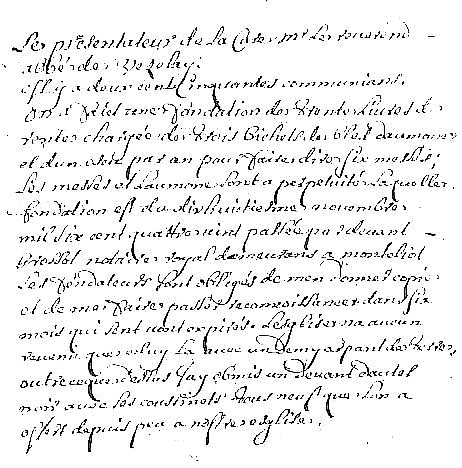 Le presentateur de la Cure mr le reverend
abbé de Vezelay;
et il y a deux cent Cinquantes communians.
On a fait une fondation de trente livres de
rentes chargée de trois bichets de bled d'aumone
et d'un autre par an pour faire dire six messes;
les messes et l'aumone sont a perpetuité, laquelle
fondation est du dix huitiesme novembre
mil six cent quattrevint passée par devant
notaire royal demeurans a
Les fondateurs sont obligés de m'en donner copie
et de me faire passer reconnoissance dans six
mois qui sont expirés. L'esglise n'a aucun
revenu que celuy la avec un demy arpant de terre,
outre ce que dessus j'ay obmis un devant d'autel
noir avec les coussinets tous neuf que l'on a
offert depuis peu a nostre esglise.